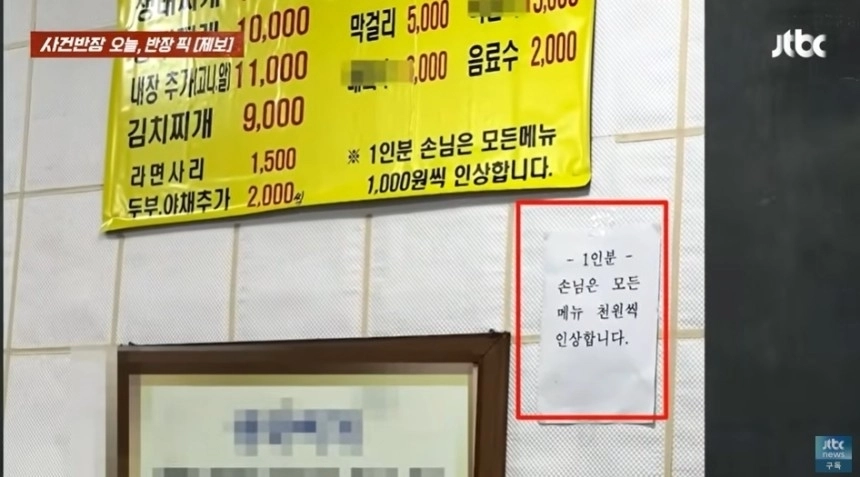 사건반장 오늘, 반장 픽 [제보]
jtbc
10,000
내장 추가(고니,알) 11,000
김치찌개 9,000
라면사리 1,500
두부.야채추가 2,000씩
막걸리 5,000
,000 음료수 2,000
※ 1인분 손님은 모든메뉴
1,000원씩 인상합니다.
- 1인분 -
손님은 모든
메뉴 천원씩
인상합니다.
jtbc
news
구독